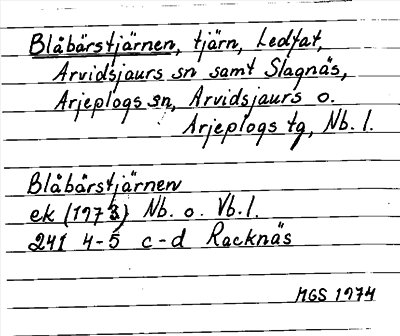 Blåbärstjärnen, tjärn, Ledfat,
Arvidsjaurs sn samt Slagnäs,
Arjeplogs sn, Arvidsjaurs o.
Arjeplogs tg, Nb. l.
Blåbärstjärnen
ek (1973) Nb. o. Vb. l.
241 4-5 c-d Racknäs
MGS 1974